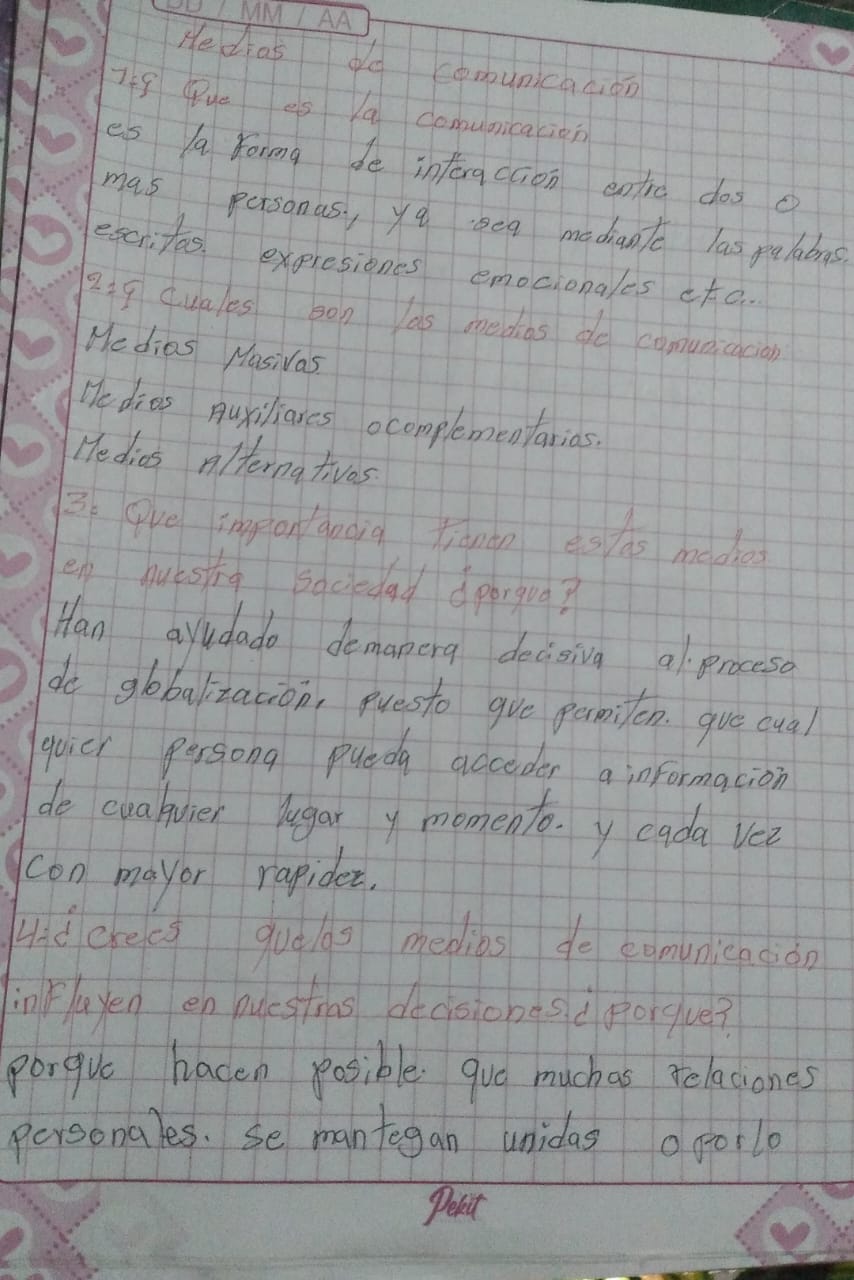 DD / MM / AA
Medios de comunicación
1=¿ Que es la comunicación
es la forma de interacción entre dos o
mas personas., ya sea mediante las palabras.
escritas. expresiones emocionales etc..
2=¿ Cuales son los medios de comunicación
Medios Masivos.
Medios Auxiliares ocomplementarios.
Medios Alternativos.
3= Que importancia tienen estos medios
en nuestra sociedad ¿porque?
Han ayudado demanera decisiva al proceso
de globalización, puesto que permiten. que cual
quier persona pueda acceder a información
de cualquier lugar y momento. y cada vez
con mayor rapidez.
4=¿ crees quelos medios de comunicación
influyen en nuestras decisiones.¿ porque?
porque hacen posible. que muchas relaciones
personales. se mantegan unidas o porlo
Pekit